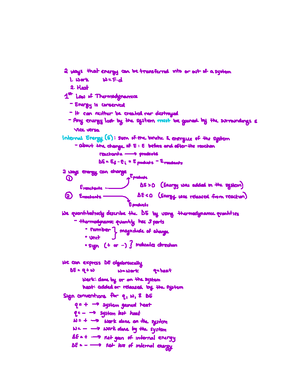 2 ways that energy can be transferred into or out of a system
1. Work W=F·d
2. Heat
1st Law of Thermodynamics
- Energy is conserved
- It can neither be created nor destroyed
- Any energy lost by the system must be gained by the surroundings &
vice versa
Internal Energy (E): Sum of the kinetic & energies of the system
- about the change of E: E before and after the reaction
reactants → products
ΔE = Ef - Ei = Eproducts - Ereactants
2 ways energy can change
① Ereactants Eproducts ΔE>0 (Energy was added in the system)
② Ereactants Eproducts ΔE<0 (Energy was released from reaction)
We quantitatively describe the ΔE by using thermodynamic quantities
- thermodynamic quantity has 3 parts
- number } magnitude of change
- unit
- sign (+ or -) } indicates direction
We can express ΔE algebraically
ΔE = q+w w=work q=heat
work: done by or on the system
heat: added or released by the system
Sign conventions for q, W, & ΔE
q = + → system gained heat
q = - → system lost heat
W = + → work done on the system
W = - → work done by the system
ΔE = + → net gain of internal energy
ΔE = - → net loss of internal energy